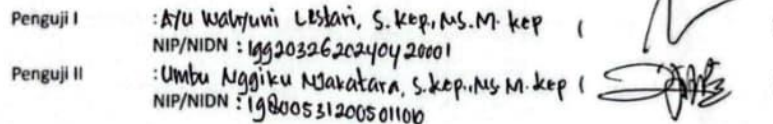 Penguji I : Ayu Wahyuni Lestari, S.Kep., Ns. M. Kep (
NIP/NIDN : 1992032620240420001
Penguji II : Umbu Nggiku Njakatara, S.Kep., Ns M. Kep (
NIP/NIDN : 198005312005011006